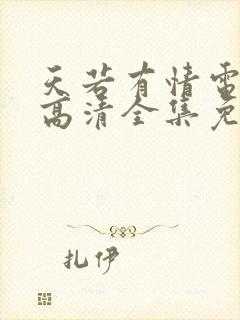 天若有情雷
高清全集免
扎伊